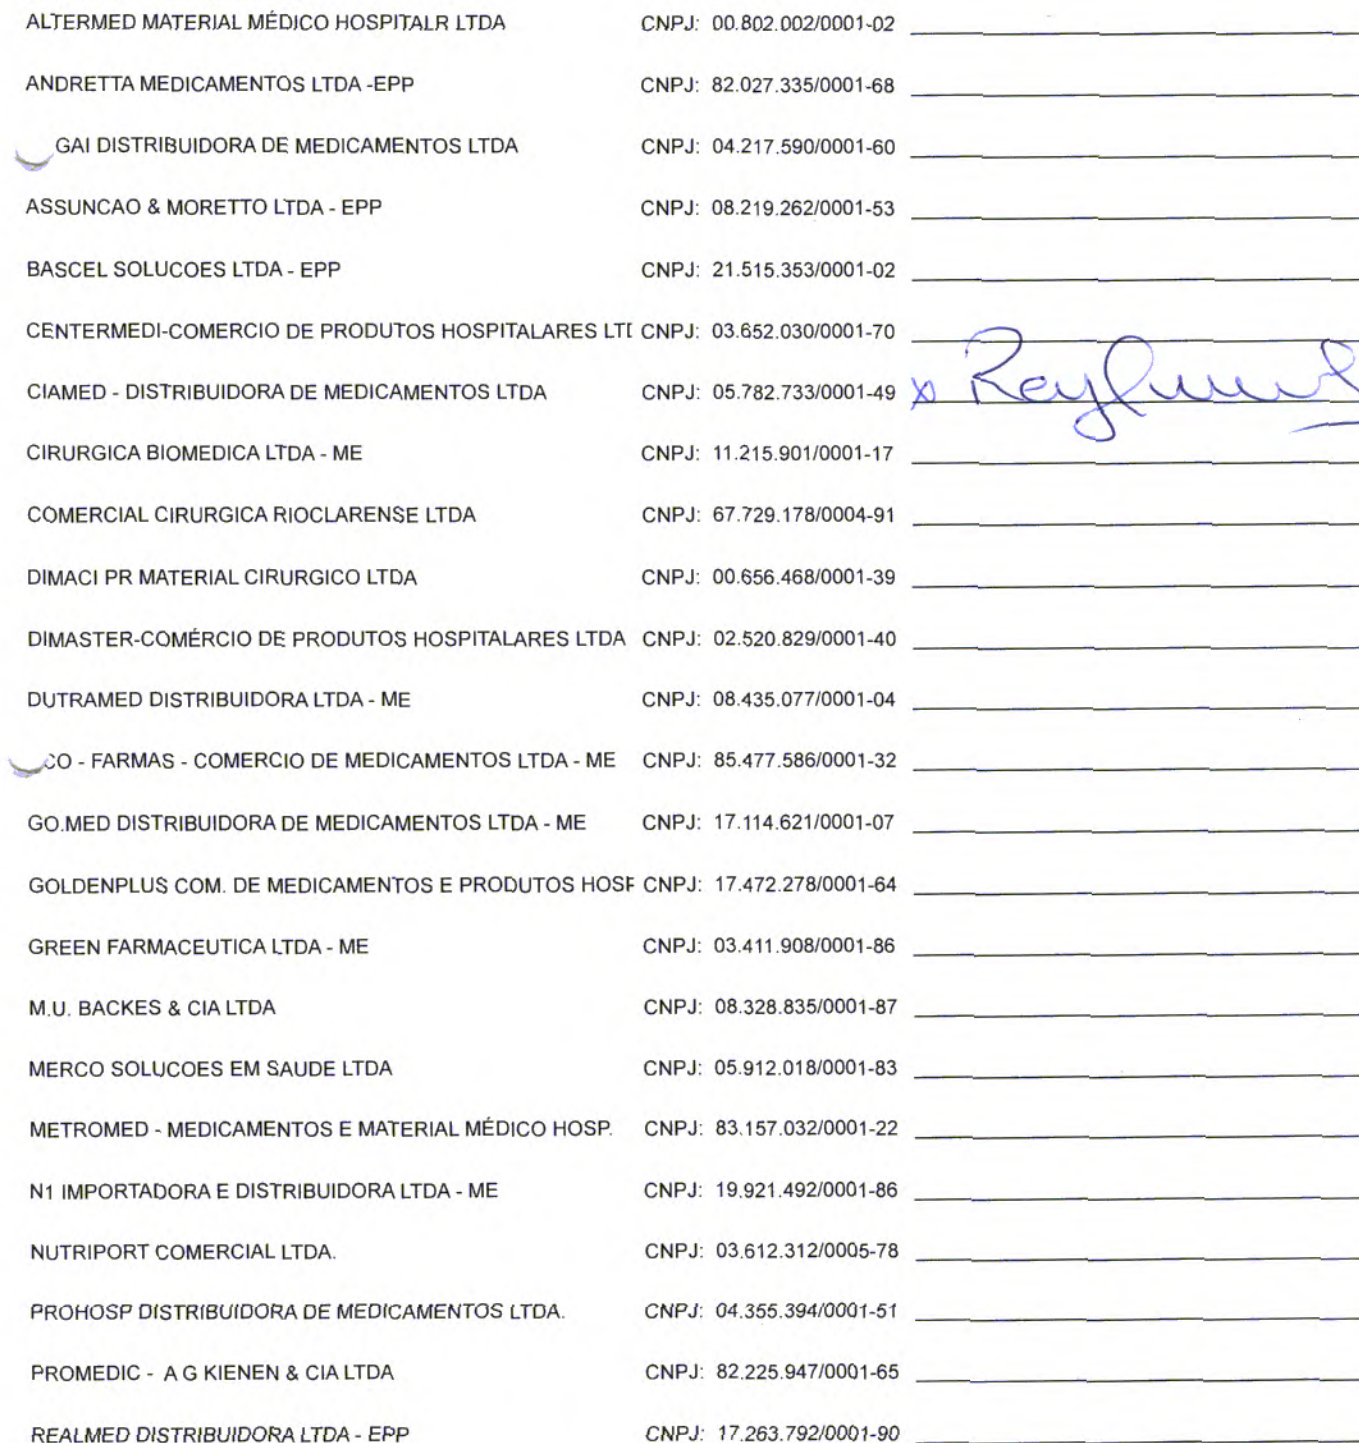 ALTERMED MATERIAL MÉDICO HOSPITALR LTDA CNPJ: 00.802.002/0001-02
ANDRETTA MEDICAMENTOS LTDA -EPP CNPJ: 82.027.335/0001-68
GAI DISTRIBUIDORA DE MEDICAMENTOS LTDA CNPJ: 04.217.590/0001-60
ASSUNCAO & MORETTO LTDA - EPP CNPJ: 08.219.262/0001-53
BASCEL SOLUCOES LTDA - EPP CNPJ: 21.515.353/0001-02
CENTERMEDI-COMERCIO DE PRODUTOS HOSPITALARES LTD CNPJ: 03.652.030/0001-70
CIAMED - DISTRIBUIDORA DE MEDICAMENTOS LTDA CNPJ: 05.782.733/0001-49
CIRURGICA BIOMEDICA LTDA - ME CNPJ: 11.215.901/0001-17
COMERCIAL CIRURGICA RIOCLARENSE LTDA CNPJ: 67.729.178/0004-91
DIMACI PR MATERIAL CIRURGICO LTDA CNPJ: 00.656.468/0001-39
DIMASTER-COMÉRCIO DE PRODUTOS HOSPITALARES LTDA CNPJ: 02.520.829/0001-40
DUTRAMED DISTRIBUIDORA LTDA - ME CNPJ: 08.435.077/0001-04
CO - FARMAS - COMERCIO DE MEDICAMENTOS LTDA - ME CNPJ: 85.477.586/0001-32
GO.MED DISTRIBUIDORA DE MEDICAMENTOS LTDA - ME CNPJ: 17.114.621/0001-07
GOLDENPLUS COM. DE MEDICAMENTOS E PRODUTOS HOSP CNPJ: 17.472.278/0001-64
GREEN FARMACEUTICA LTDA - ME CNPJ: 03.411.908/0001-86
M.U. BACKES & CIA LTDA CNPJ: 08.328.835/0001-87
MERCO SOLUCOES EM SAUDE LTDA CNPJ: 05.912.018/0001-83
METROMED - MEDICAMENTOS E MATERIAL MÉDICO HOSP. CNPJ: 83.157.032/0001-22
N1 IMPORTADORA E DISTRIBUIDORA LTDA - ME CNPJ: 19.921.492/0001-86
NUTRIPORT COMERCIAL LTDA. CNPJ: 03.612.312/0005-78
PROHOSP DISTRIBUIDORA DE MEDICAMENTOS LTDA. CNPJ: 04.355.394/0001-51
PROMEDIC - A G KIENEN & CIA LTDA CNPJ: 82.225.947/0001-65
REALMED DISTRIBUIDORA LTDA - EPP CNPJ: 17.263.792/0001-90